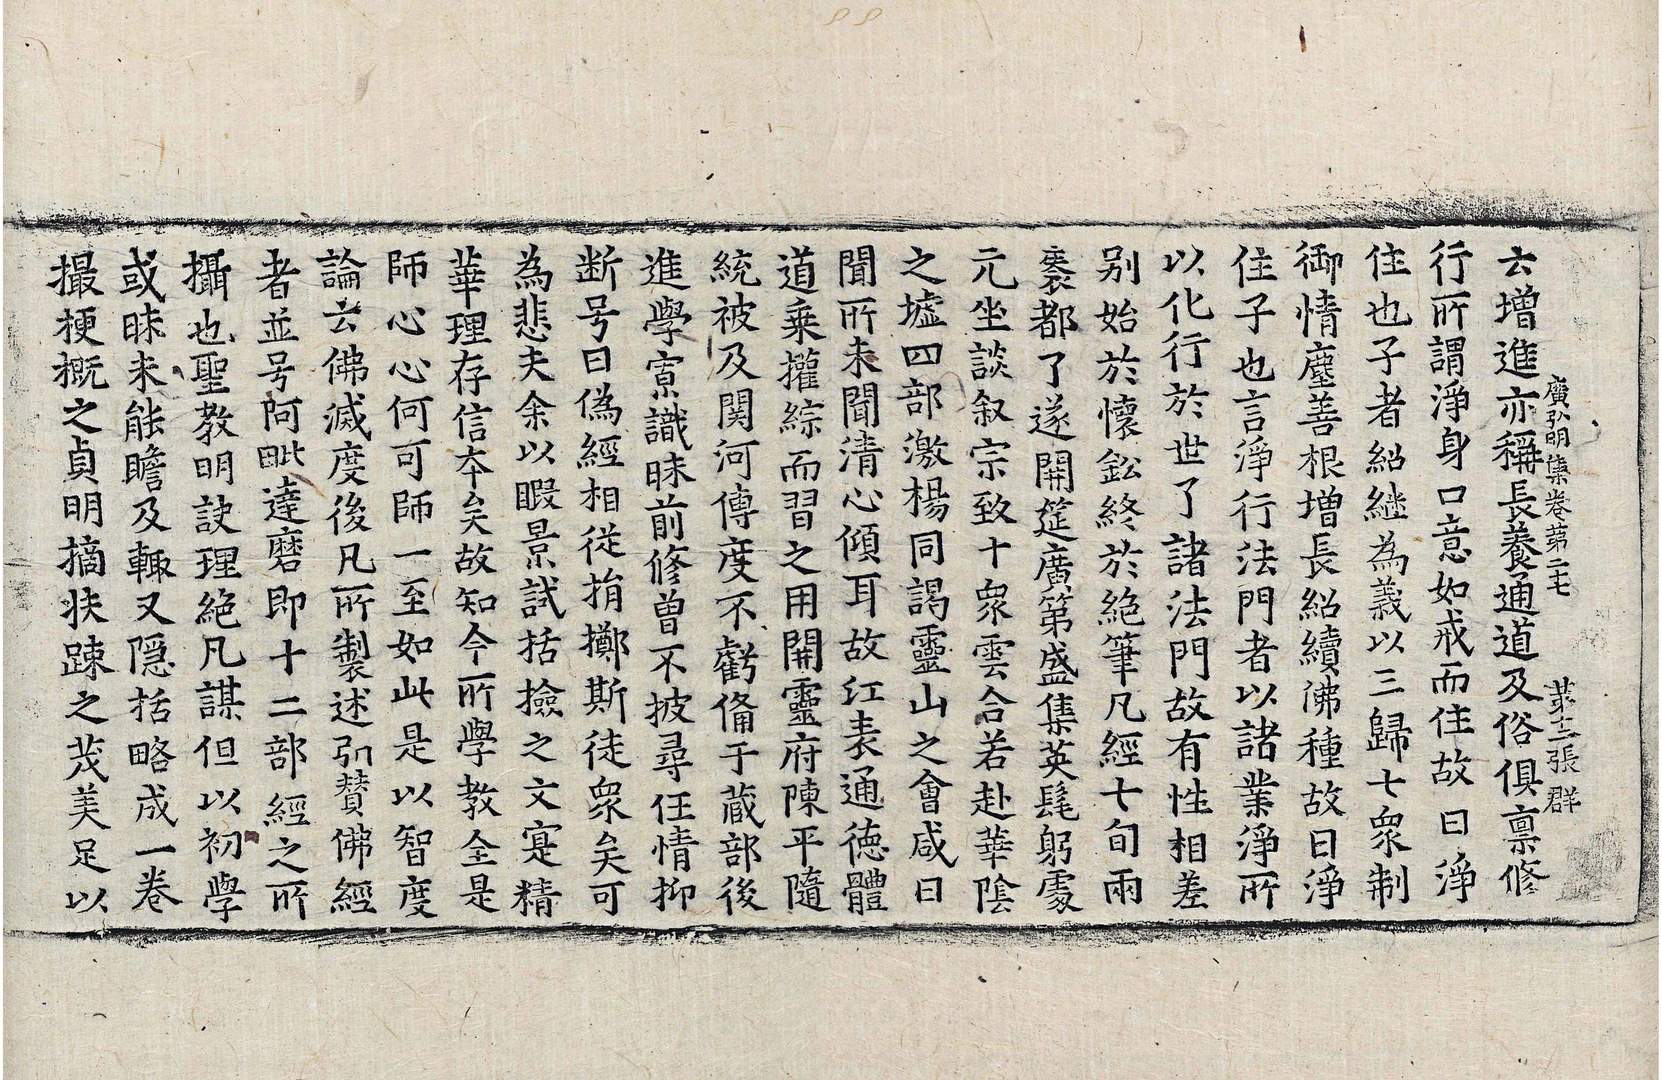 廣弘明集卷第二七　第十三張　群
云增進亦稱長養通道及俗俱稟修
行所謂淨身口意如戒而住故曰淨
住也子者紹継為義以三歸七衆制
御情塵善根增長紹續佛種故曰淨
住子也言淨行法門者以諸業淨所
以化行於世了諸法門故有性相差
别始於懷鈆終於絶筆凡經七旬兩
袠都了遂開筵廣第盛集英髦躬處
元坐談叙宗致十衆雲合若赴華陰
之墟四部激楊同謁靈山之會咸曰
聞所未聞清心傾耳故江表通德體
道乗權綜而習之用開靈府陳平隨
統被及関河傳度不虧備于藏部後
進學寡識昧前修曽不披尋任情抑
断号曰偽經相従捐擲斯徒衆矣可
為悲夫余以暇景試括撿之文寔精
華理存信夲矣故知今所學教全是
師心心何可師一至如此是以智度
論云佛滅度後凡所製述引賛佛經
者並号阿毗達磨即十二部經之所
攝也聖教明訣理絶凡謀但以初學
或昧未能瞻及輙又隠括略成一卷
撮梗概之貞明摘扶踈之茂美足以